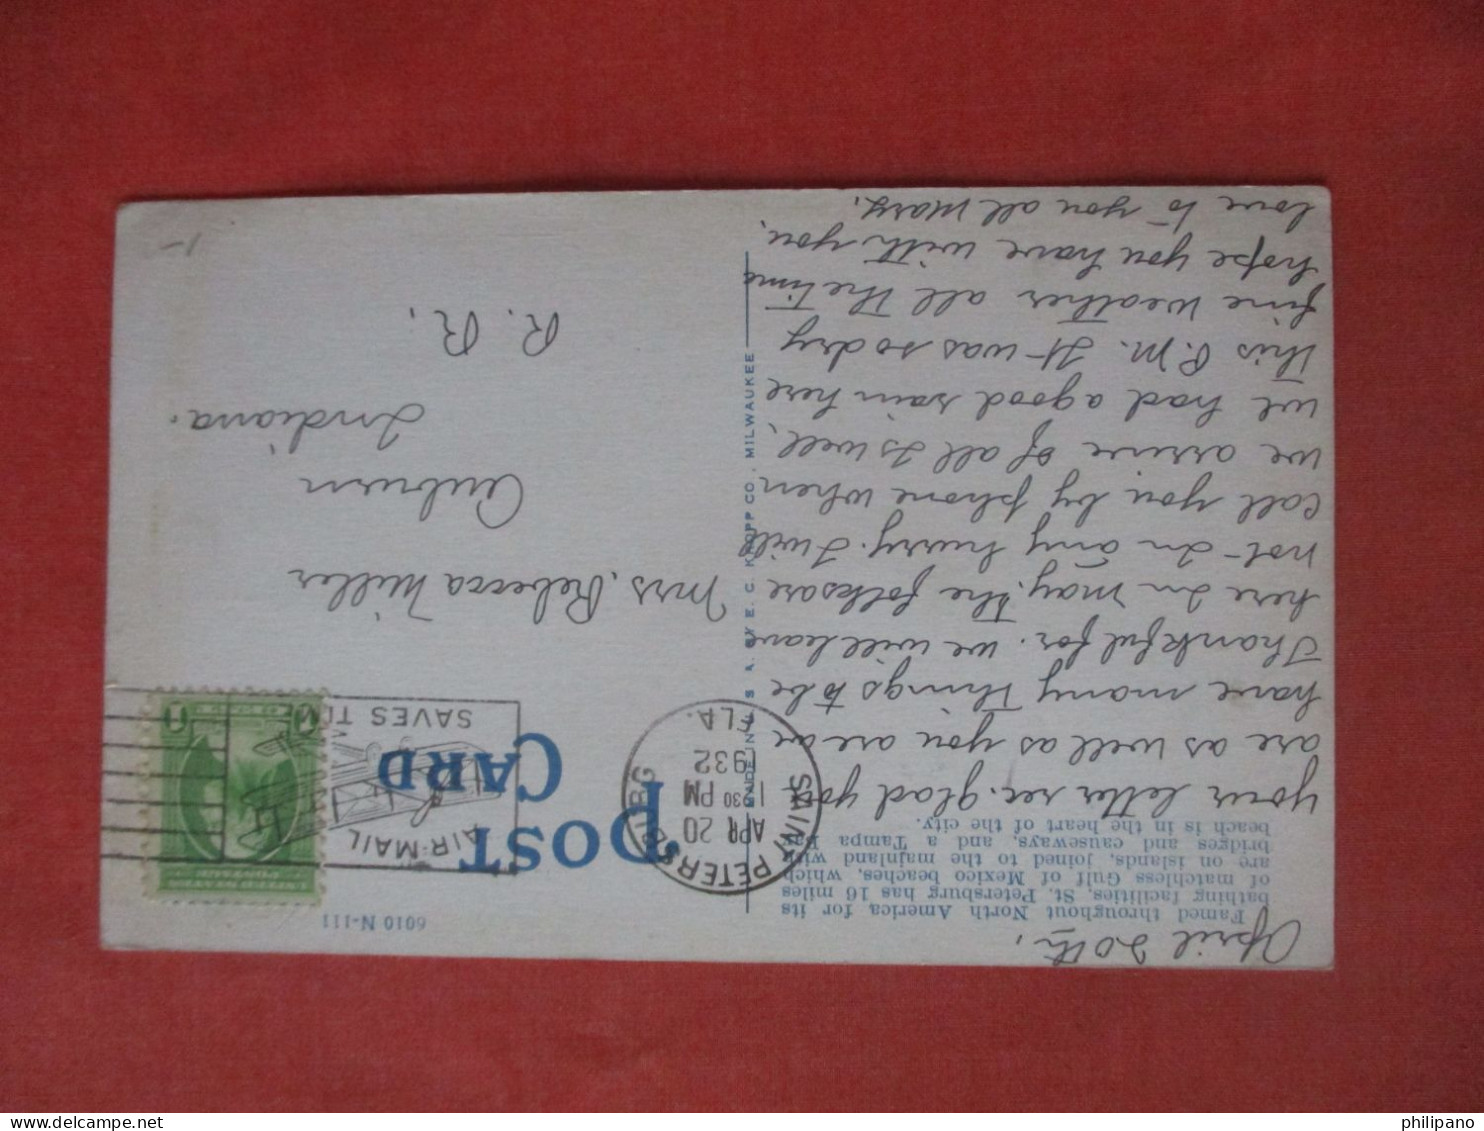 April 20th,
Famed throughout North America for its
bathing facilities, St. Petersburg has 16 miles
of matchless Gulf of Mexico beaches, which
are on islands, joined to the mainland with
bridges and causeways, and a Tampa Bay
beach is in the heart of the city.
your letter rec. glad you
are as well as you are an
have many things to be
Thankful for. we will leave
here In may. The folks are
not In any hurry. I will
call you by phone when
we arrive If all Is well,
we had a good rain here
this P.M. It was so dry
fine weather all the time
hope you have with you,
love to you all Mary.
6010 N-111
POST
CARD
MADE IN U. S. A. BY E. C. KROPP CO., MILWAUKEE
SAINT PETERSBURG
APR 20
1230 PM
1932
FLA.
AIR MAIL
SAVES
1
Mrs. Rebecca Miller
Auburn
Indiana.
R. R,
1-
philipano